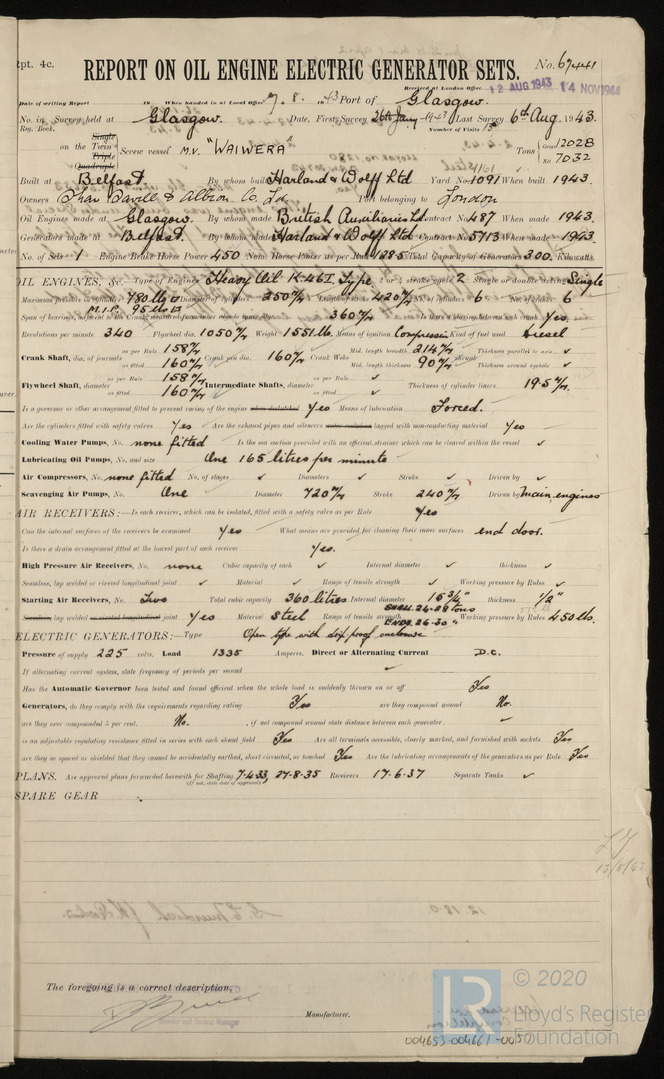 Rpt. 4c.
REPORT ON OIL ENGINE ELECTRIC GENERATOR SETS.
No. 67441
Received at London Office
12 AUG 1943 14 NOV 1944
Date of writing Report 19 When handed in at Local Office 7. 8. 1943 Port of Glasgow.
No. in Survey held at Glasgow. Date, First Survey 26th Jany 1943 Last Survey 6th Aug. 1943.
Reg. Book. Number of Visits
on the Single Twin Triple Quadruple Screw vessel M.V. "WAIWERA" Tons Gross 12028 Net 7032
Built at Belfast. By whom built Harland & Wolff Ltd Yard No. 1091 When built 1943.
Owners Shaw Savill & Albion Co. Ld Port belonging to London
Oil Engines made at Glasgow. By whom made British Auxiliaries Ld Contract No. 487 When made 1943.
Generators made at Belfast. By whom made Harland & Wolff Ltd Contract No. 5713 When made 1943.
No. of Sets 1 Engine Brake Horse Power 450 Nom. Horse Power as per Rule Total Capacity of Generators 300. Kilowatts.
OIL ENGINES, &c. Type of Engines Heavy Oil K-46I Type 2 or 4 stroke cycle 2 Single or double acting Single
Maximum pressure in cylinders 780 lbs Diameter of cylinders 250 m/m Length of stroke 420 m/m No. of cylinders 6 No. of cranks 6
M.I.P. 95 lbs
Span of bearings, 360 m/m Is there a bearing between each crank Yes.
Revolutions per minute 340 Flywheel dia. 1050 m/m Weight 1551 lbs. Means of ignition Compression Kind of fuel used Diesel
Crank Shaft, dia. of journals as per Rule 158 m/m as fitted 160 m/m Crank pin dia. 160 m/m Crank Webs Mid. length breadth 214 m/m Mid. length thickness 90 m/m Thickness parallel to axis ✓ Thickness around eyehole ✓
Flywheel Shaft, diameter as per Rule 158 m/m as fitted 160 m/m Intermediate Shafts, diameter as per Rule ✓ as fitted Thickness of cylinder liners 19.5 m/m
Is a governor or other arrangement fitted to prevent racing of the engine when declutched Yes Means of lubrication Forced.
Are the cylinders fitted with safety valves Yes Are the exhaust pipes and silencers water cooled or lagged with non-conducting material Yes
Cooling Water Pumps, No. none fitted Is the sea suction provided with an efficient strainer which can be cleared within the vessel ✓
Lubricating Oil Pumps, No. and size One 165 litres per minute
Air Compressors, No. none fitted No. of stages ✓ Diameters ✓ Stroke ✓ Driven by ✓
Scavenging Air Pumps, No. One Diameter 720 m/m Stroke 240 m/m Driven by Main engines
AIR RECEIVERS:—Is each receiver, which can be isolated, fitted with a safety valve as per Rule Yes
Can the internal surfaces of the receivers be examined Yes What means are provided for cleaning their inner surfaces end door.
Is there a drain arrangement fitted at the lowest part of each receiver Yes.
High Pressure Air Receivers, No. none Cubic capacity of each ✓ Internal diameter ✓ thickness ✓
Seamless, lap welded or riveted longitudinal joint ✓ Material ✓ Range of tensile strength ✓ Working pressure by Rules ✓
Starting Air Receivers, No. Two Total cubic capacity 360 litres Internal diameter 15 3/4" thickness 1/2"
Seamless, lap welded or riveted longitudinal joint Yes Material Steel Range of tensile strength SHELL 24-28 tons ENDS 26-30 " Working pressure by Rules 450 lbs.
ELECTRIC GENERATORS:—Type Open type with drip proof enclosure
Pressure of supply 225 volts. Load 1335 Amperes. Direct or Alternating Current D.C.
If alternating current system, state frequency of periods per second ✓
Has the Automatic Governor been tested and found efficient when the whole load is suddenly thrown on or off Yes
Generators, do they comply with the requirements regarding rating Yes are they compound wound No.
are they over compounded 5 per cent. No. , if not compound wound state distance between each generator ✓
is an adjustable regulating resistance fitted in series with each shunt field Yes Are all terminals accessible, clearly marked, and furnished with sockets Yes
are they so spaced or shielded that they cannot be accidentally earthed, short circuited, or touched Yes Are the lubricating arrangements of the generators as per Rule Yes
PLANS. Are approved plans forwarded herewith for Shafting 7.4.33, 27-8-35 Receivers 17-6-37 Separate Tanks ✓
(If not, state date of approval)
SPARE GEAR
13/8/43
The foregoing is a correct description,
Manufacturer.
LR
© 2020
Lloyd's Register
Foundation
004653-004661-0050